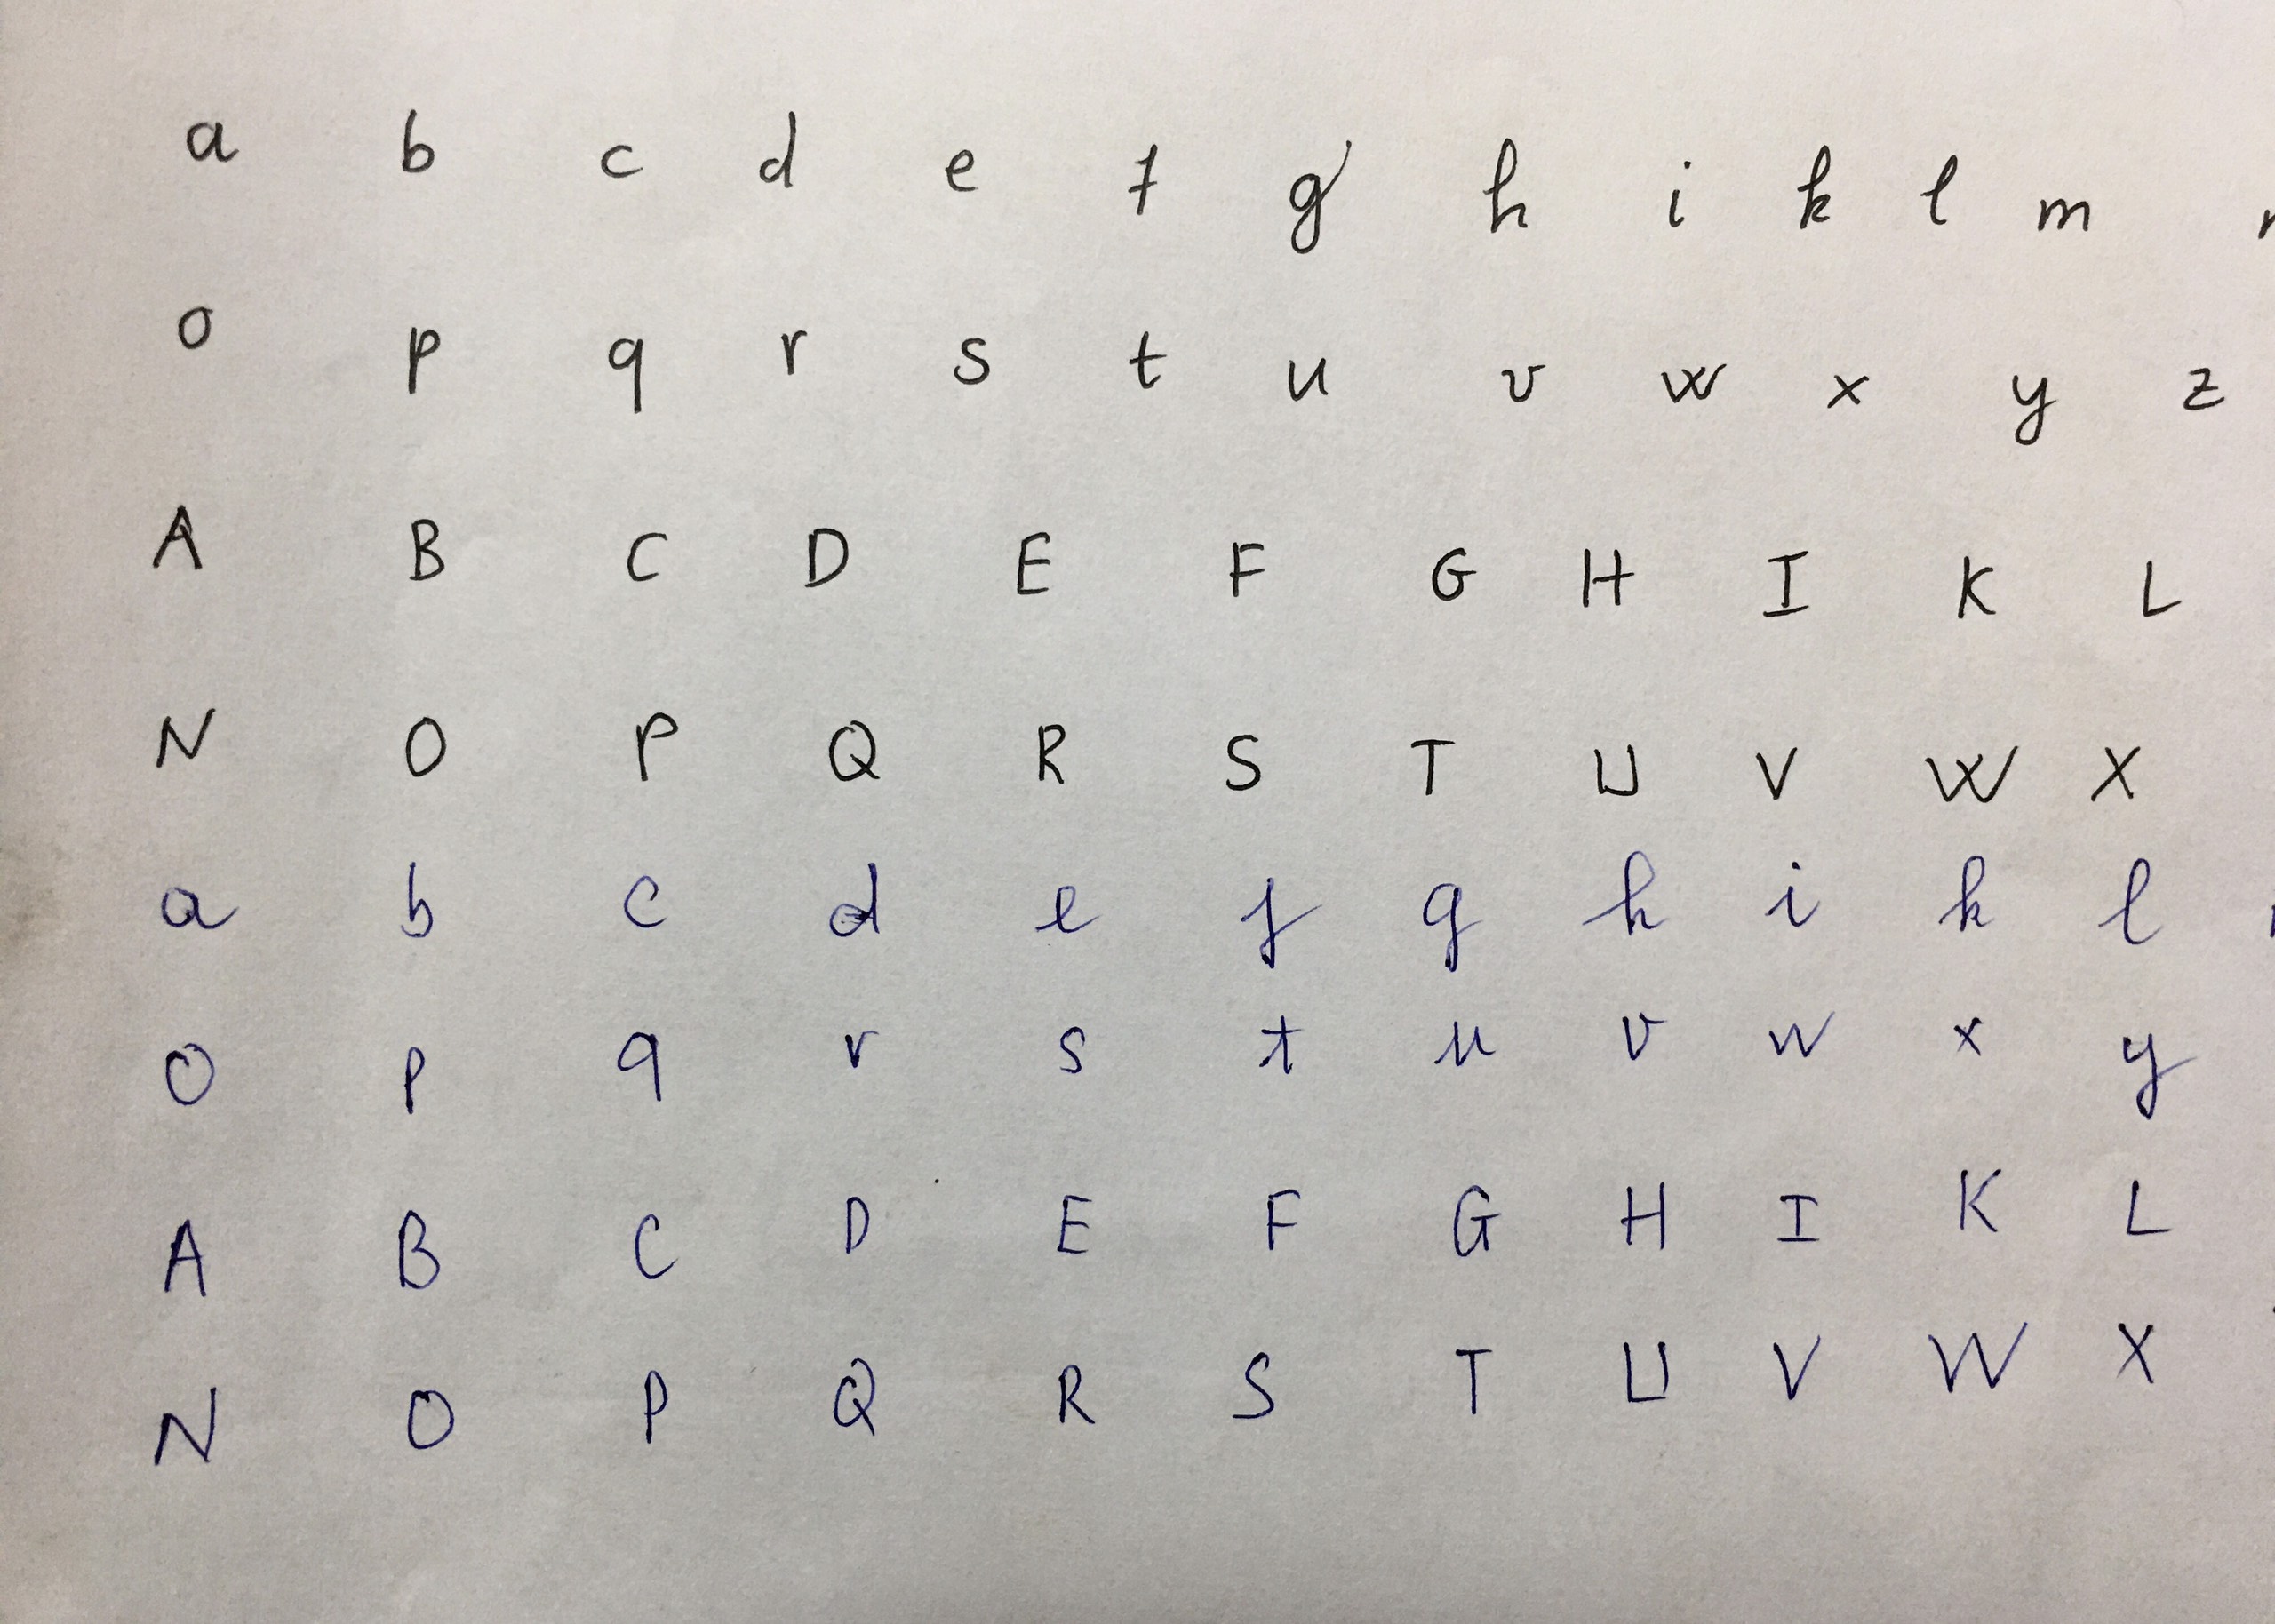 a b c d e f g h i k l m
o p q r s t u v w x y z
A B C D E F G H I K L
N O P Q R S T U V W X
a b c d e f g h i k l
o p q r s t u v w x y
A B C D E F G H I K L
N O P Q R S T U V W X